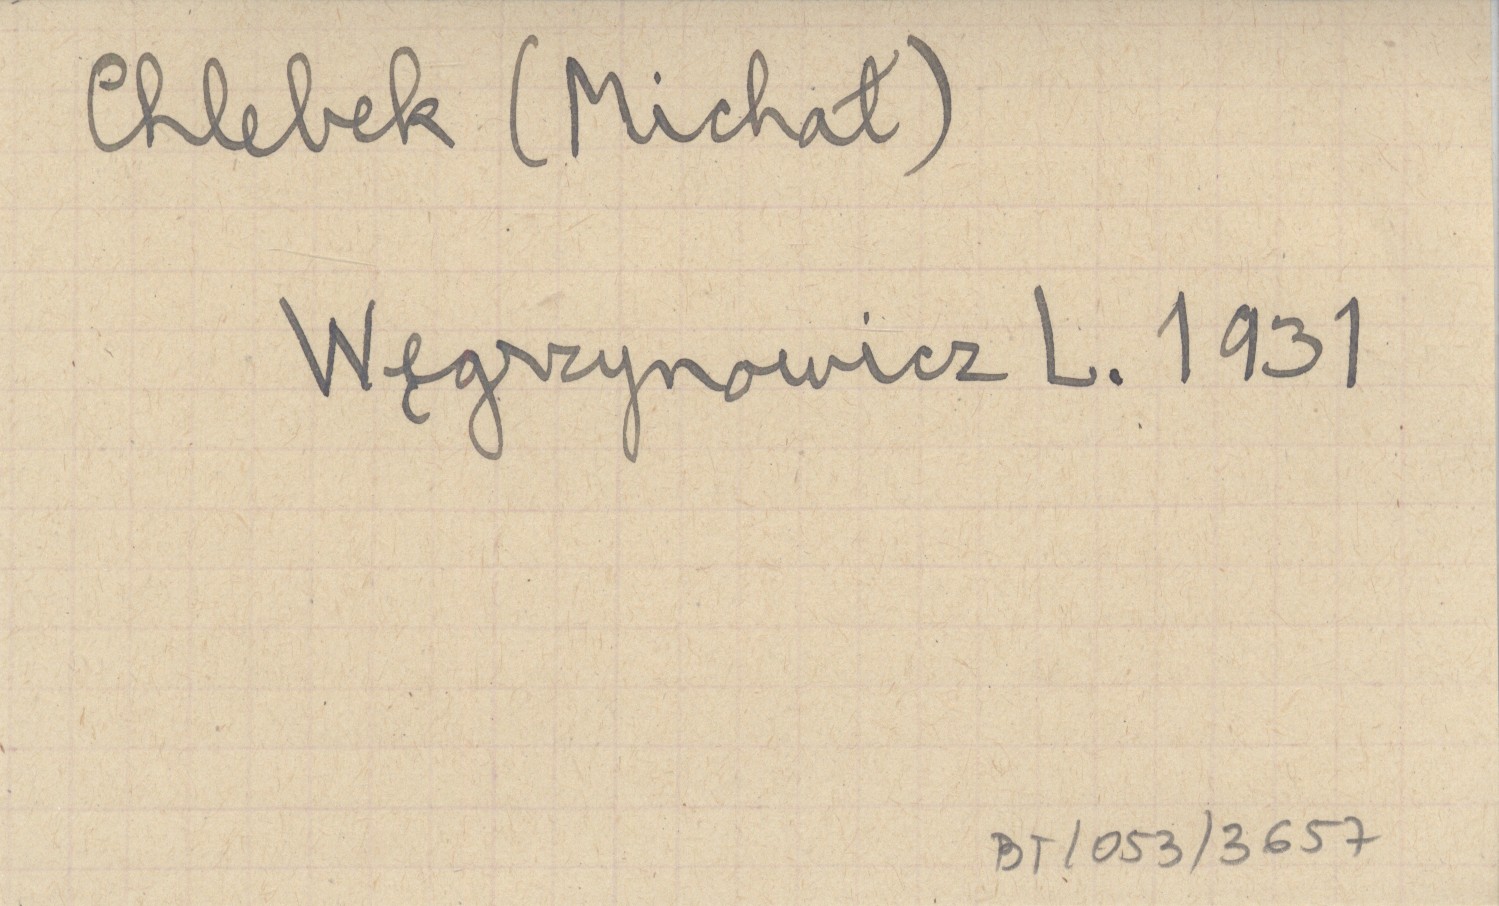 Chlebek (Michał)
Węgrzynowicz L. 1931
BT/053/3657